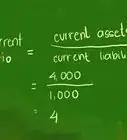 rrent
tio = current asset
current liabil
= 4,000
1,000
= 4